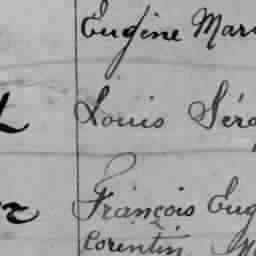 Eugène Mari
Louis Séra
François Eug
Corentin